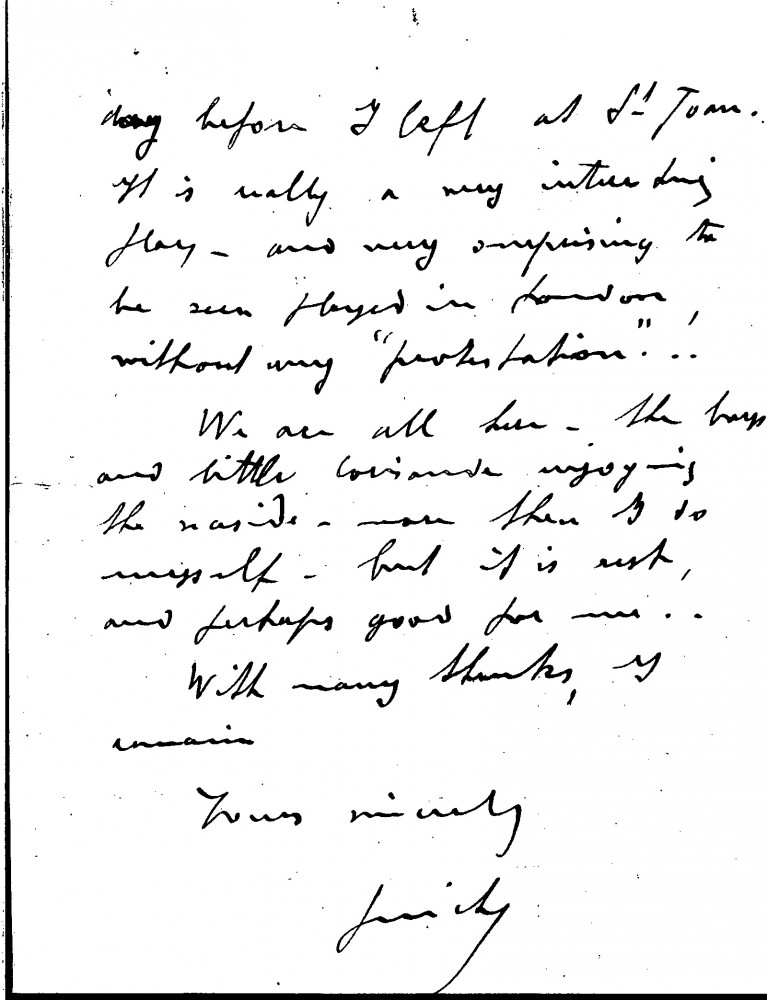 day before I left at St Joan.
It is really a very interesting
play – and very surprising to
be seen played in London,
without any "protestation"...
We are all here – the boys
and little Corisande enjoying
the seaside – more than I do
myself – but it is rest,
and perhaps good for me..
With many thanks, I
remain
Yours sincerely